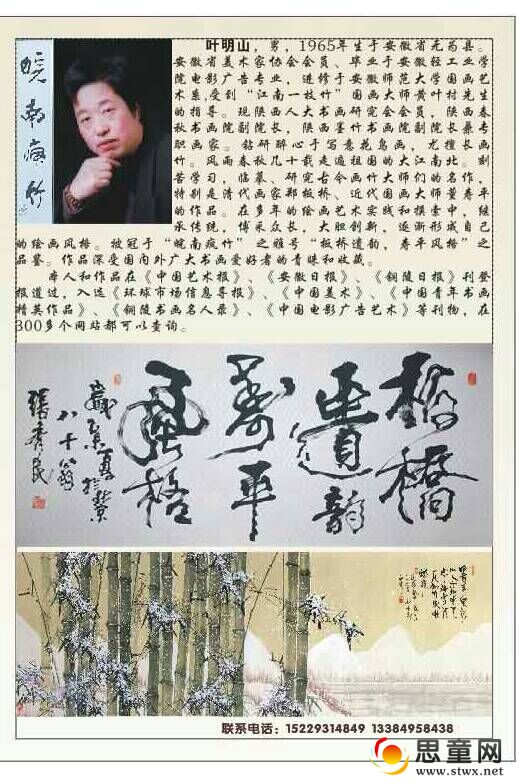 皖南疯竹
叶明山，男，1965年生于安徽省无为县。
安徽省美术家协会会员、毕业于安徽轻工业学
院电影广告专业，进修于安徽师范大学国画艺
术系,受到“江南一枝竹”国画大师黄叶村先生
的指导。现陕西人大书画研究会会员，陕西春
秋书画院副院长，陕西墨竹书画院副院长兼专
职画家。钻研醉心于写意花鸟画，尤擅长画
竹。风雨春秋几十载走遍祖国的大江南北。刻
苦学习，临摹、研究古今画竹大师们的名作，
特别是清代画家郑板桥、近代国画大师董寿平
的作品。在多年的绘画艺术实践和摸索中，继
承传统，博采众长，大胆创新，逐渐形成自己
的绘画风格。被冠于“皖南疯竹”之雅号“板桥遗韵，寿平风格”之
品鉴。作品深受国内外广大书画爱好者的青睐和收藏。
本人和作品在《中国艺术报》、《安徽日报》、《铜陵日报》刊登
报道过，入选《环球市场信息导报》、《中国美术》、《中国青年书画
精英作品》、《铜陵书画名人录》、《中国电影广告艺术》等刊物，在
300多个网站都可以查询。
板桥
遗韵
寿平
风格
八十翁
张秀民
联系电话：15229314849 13384958438
思童网
www.stwx.net